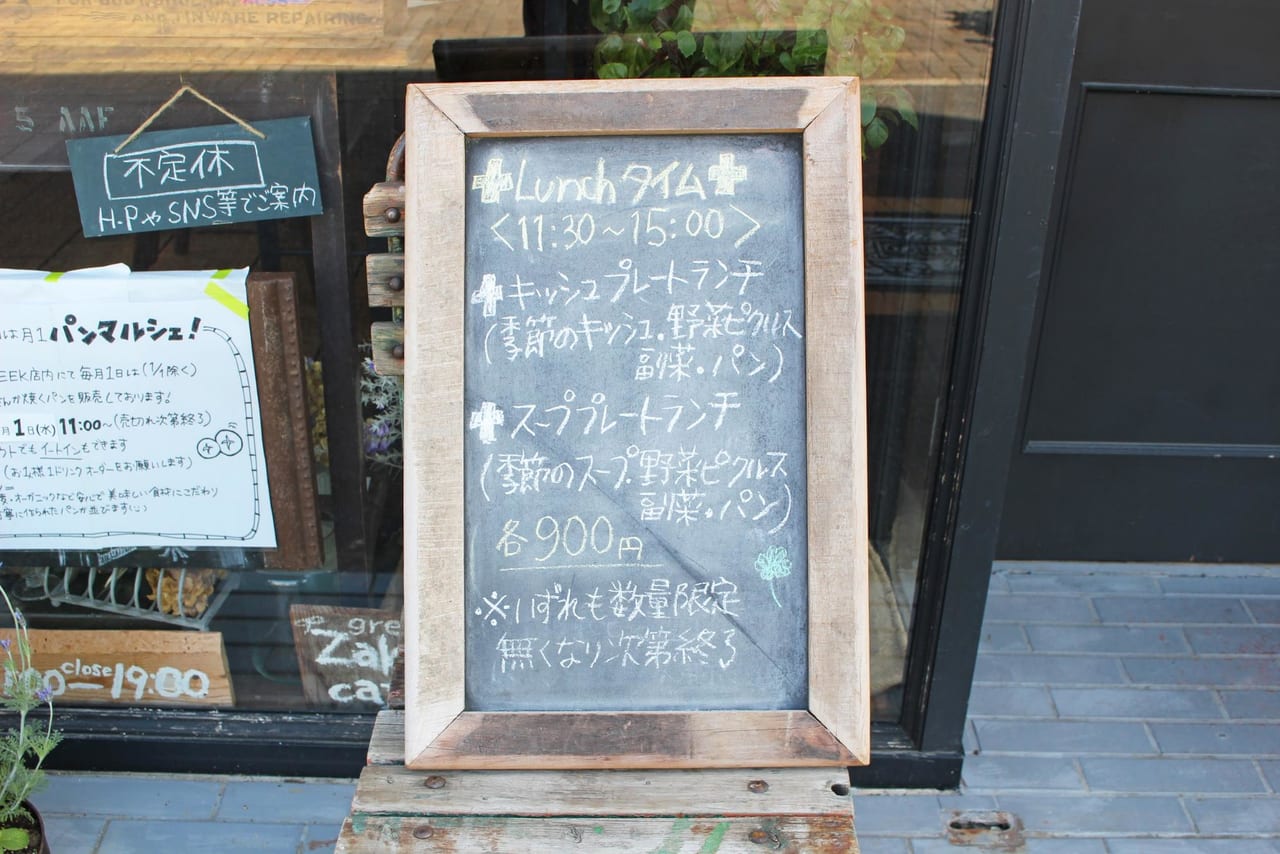 AND TINWARE REPAIRING
5 AAF
不定休
H.PやSNS等でご案内
Lunchタイム
<11:30〜15:00>
キッシュプレートランチ
(季節のキッシュ・野菜ピクルス
副菜・パン)
スーププレートランチ
(季節のスープ・野菜ピクルス
副菜・パン)
各900円
※いずれも数量限定
無くなり次第終了
は月1パンマルシェ!
EEK店内にて毎月1日は(1/1除く)
さんが焼くパンを販売しております!
月1日(水) 11:00〜(売切れ次第終了)
トでもイートインもできます
(お1人様1ドリンクオーダーをお願いします)
麦・オーガニックなど安心で美味しい食材にこだわり
寧に作られたパンが並びます
close
00—19:00
gre
Zak
ca